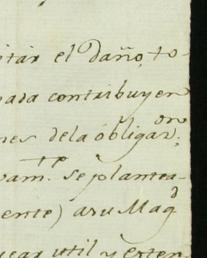 itar el daño, to-
nada contribuyen
nes dela obligaon.
vamte. se plantea-
ente) asu Magd
icar util y exten